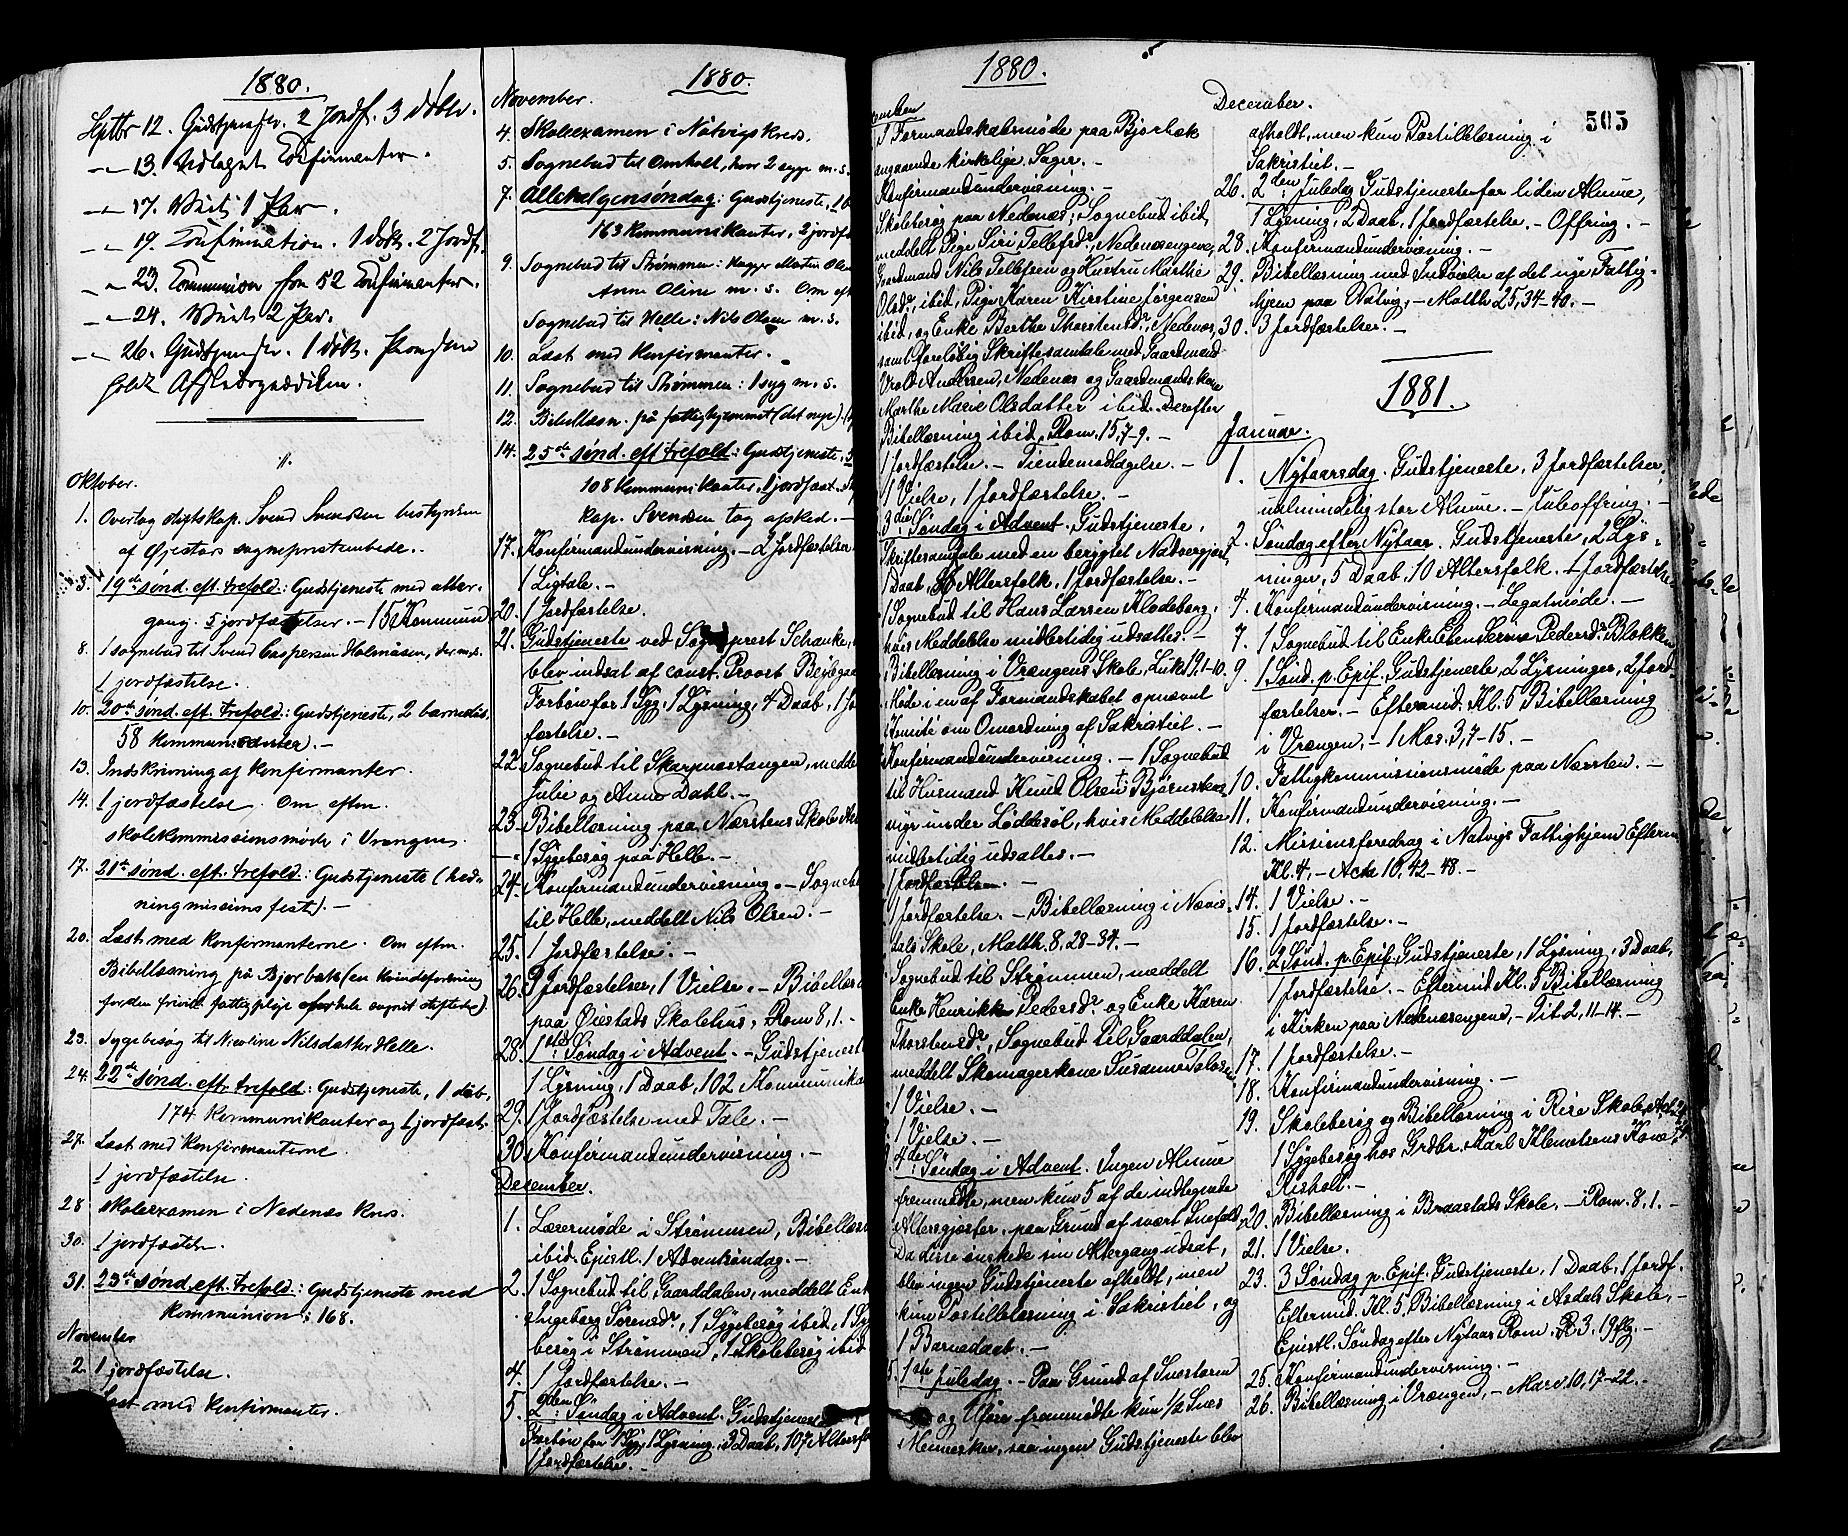 1880.
Septbr 12. Gudstjeneste. 2 Jordf. 3 døbte.
— 13. Udlaget Confirmanter.
— 17. Viet 1 Par.
— 19. Confirmation. 1 døbt. 2 Jordf.
— 23. Communion for 52 Confirmanter.
— 24. Viet 2 Par.
— 26. Gudstjeneste. 1 døbt.
holdt Afskedsprædiken.
Oktober.
1. Overtog stiftskap. Svend Svendsen bestyrelsen
af Øjestas sogneprestembede.
3. 19de sønd. eft. trefold: Gudstjeneste med alter-
gang. 5 jordfæstelser. — 15 Kommund
8. 1 sognebud til Svend Caspersen Holmåsen, der m. s.
1 jordfæstelse.
10. 20de sønd. eft. trefold: Gudstjeneste, 2 barnedåb,
58 kommunikanter. —
13. Indskrivning af konfirmanter.
14. 1 jordfæstelse. Om eftm.
skolekommissionsmøde i Vrængen.
17. 21de sønd. eft. trefold: Gudstjeneste (hed-
ningmissionsfest). —
20. Læst med konfirmanterne. Om eftm.
Bibellæsning på Bjorbæk (en kvindeforening
for den frivill. fattigpleje stiftedes).
23. Sygebesøg til Nicoline Nilsdatter Helle.
24. 22de sønd. eft. trefold: Gudstjeneste, 1 dåb,
174 kommunikanter og 1 jordfæst.
27. Læst med konfirmanterne.
1 jordfæstelse.
28 Skoleexamen i Nedenæs kreds.
30. 1 jordfæstelse.
31. 23de sønd. eft. trefold: Gudstjeneste med
kommunion: 168.
November
2. 1 jordfæstelse.
Læst med konfirmanter.
1880.
November.
4. Skoleexamen i Natvigs kreds.
5. Sognebud til Omholt, hvor 2 syge m. s.
7. Allehelgensøndag: Gudstjeneste,
163 kommunikanter, 2 jordfæ
9. Sognebud til Strømmen: Martin Olsen
Anne Oline m. s. Om eft
Sognebud til Helle: Nils Olsen m. s.
10. Læst med konfirmanter.
11. Sognebud til Strømmen: 1 syg m. s.
12. Bibellæsn. på fattighjemmet (det nye).
14. 25de sønd. eft. trefold: Gudstjeneste,
108 kommunikanter, 1 jordfæst.
kap. Svendsen tog afsked. —
17. Konfirmandundervisning. — 2 Jordfæstelser
1 Ligtale. —
20. 1 Jordfæstelse.
21. Gudstjeneste ved Sogneprest Schanke,
blev indsat af const. Provst
Forbøn for 1 Syg. 1 Lysning, 4 Daab, 1 Jo
fæstelse. —
22. Sognebud til Skarpnæstangen, meddelt
Julie og Anne Dahl. —
23. Bibellæsning paa Næsstens Skole
— 1 Sygebesøg paa Helle. —
24. Konfirmandundervisning. — Sognebu
til Helle, meddelt Nils Olsen. —
25. 1 Jordfæstelse. —
26. 2 Jordfæstelser, 1 Vielse. — Bibellæs
paa Øiestads Skolehus, Rom 8,1. —
28. 1ste Søndag i Advent. — Gudstjeneste
1 Lysning, 1 Daab, 102 Kommunika
29. 1 Jordfæstelse med Tale. —
30. Konfirmandundervisning. —
December.
1. Læsermøde i Strømmen, Bibellæs
ibid. Epistl. 1 Adventsøndag. —
2. 1 Sognebud til Gaarddalen, meddelt Enk
Ingeborg Sørensdr, 1 Sygebesøg ibid, 1 Syg
besøg i Strømmen, 1 Skolebesøg ibid
4. 1 Jordfæstelse. —
5. 2den Søndag i Advent. Gudstjeneste
Forbøn for 1 Syg, 1 Lysning, 3 Daab, 107 Altersfo
1 Jordfæstelse. —
1880.
1 Formandskabsmøde paa Bjorbæk
angaaende kirkelige Sager. —
Konfirmandundervisning. —
Skolebesøg paa Nedenæs; Sognebud ibid,
meddelt Pige Siri Tellefsdr, Nedenæsengene,
Gaardmand Nils Tellefsen og Hustru Marthe
Olsdr, ibid, Pige Karen Kirstine Jørgensen
ibid, og Enke Berthe Thorstensdr, Nedenæs,
samt foreløbig Skriftesamtale med Gaardmand
Andersen, Nedenæs og Gaardmandskone
Marthe Marie Olsdatter ibid. Derefter
Bibellæsning ibid, Rom. 15,7-9. —
1 Jordfæstelse. — Tiendemodtagelse. —
1 Vielse, 1 Jordfæstelse. —
3die Søndag i Advent. Gudstjeneste,
Skriftesamtale med en berygtet Nadvergjæst,
1 Daab, Altersfolk, 1 Jordfæstelse. —
1 Sognebud til Hans Larsen Klodeborg,
hvis Meddelelse midlertidig udsattes. —
Bibellæsning i Vrængens Skole, Luk 19.1-10.
Møde i en af Formandskabet opnævnt
Komite om Omordning af Sakristiet. —
Konfirmandundervisning. — 1 Sognebud
til Husmand Knud Olsen Bjørnstens
under Løddesøl, hvis Meddelelse
midlertidig udsattes. —
1 Jordfæstelse. —
1 Jordfæstelse. — Bibellæsning i Nævis-
dals Skole, Matth. 8, 28-34. —
Sognebud til Strømmen, meddelt
Enke Henrikke Pedersdr og Enke Karen
Thorstensdr, Sognebud til Gaarddalen,
meddelt Skomagerkone Susanne
1 Vielse. —
1 Vielse. —
4de Søndag i Advent. Ingen Almue
fremmødte, men kun 5 af de indtegnede
Altersgjæster, paa Grund af svært Snefald.
Da disse ønskede sin Altergang udsat,
blev ingen Gudstjeneste afholdt, men
kun Postillelæsning i Sakristiet, og
1 Barnedaab. —
1ste Juledag. — Paa Grund af Snestorm
og Uføre fremmødte kun 1/2 Snes
Mennesker, saa ingen Gudstjeneste blev
December.
505
afholdt, men kun Postillelæsning i
Sakristiet. —
26. 2den Juledag Gudstjeneste for liden Almue,
1 Lysning, 2 Daab, 1 Jordfæstelse. — Offring. —
28. Konfirmandundervisning. —
29. Bibellæsning med Indvielse af det nye Fattig-
hjem paa Natvig, — Matth 25,34-40. —
30. 3 Jordfæstelser. —
1881.
Januar.
1. Nytaarsdag. Gudstjeneste, 3 Jordfæstelser,
ualmindelig stor Almue. — Juleoffring. —
2. Søndag efter Nytaar. Gudstjeneste, 2 Lys-
ninger, 5 Daab, 10 Altersfolk. 1 Jordfæstelse
4. Konfirmandundervisning. — Legatmøde. —
7. 1 Sognebud til Enke Pedersdr Blokken
9. 1 Sønd. p. Epif. Gudstjeneste, 2 Lysninger, 2 Jord-
fæstelser. — Eftermid. Kl. 5 Bibellæsning
i Vrængen, — 1 Mos. 3,7-15. —
10. Fattigkommissionsmøde paa Næsten. —
11. Konfirmandundervisning. —
12. Missionsforedrag i Natvigs Fattighjem Efterm
Kl. 4, — Acta 10, 42-48. —
14. 1 Vielse. —
15. 1 Jordfæstelse. —
16. 2 Sønd. p. Epif. Gudstjeneste, 1 Lysning, 3 Daab,
1 Jordfæstelse. — Eftermid Kl. 5 Bibellæsning
i Kirken paa Nedenæsengene, — Tit 2, 11-14. —
17. 1 Jordfæstelse. —
18. Konfirmandundervisning. —
19. Skolebesøg og Bibellæsning i Rise Skole,
1 Sygebesøg hos Grdbr. Karl Klemetsens Kone
Risholt. —
20. Bibellæsning i Braastads Skole. — Rom. 8,1. —
21. 1 Vielse.
23. 3 Søndag p. Epif. Gudstjeneste, 1 Daab, 1 Jordf.
Eftermid. Kl. 5, Bibellæsning i Asdals Skole, —
Epistl. Søndag efter Nytaar Rom. 3. 19 flg. —
25. Konfirmandundervisning. —
26. Bibellæsning i Vrængen, — Marc 10, 17-22. —